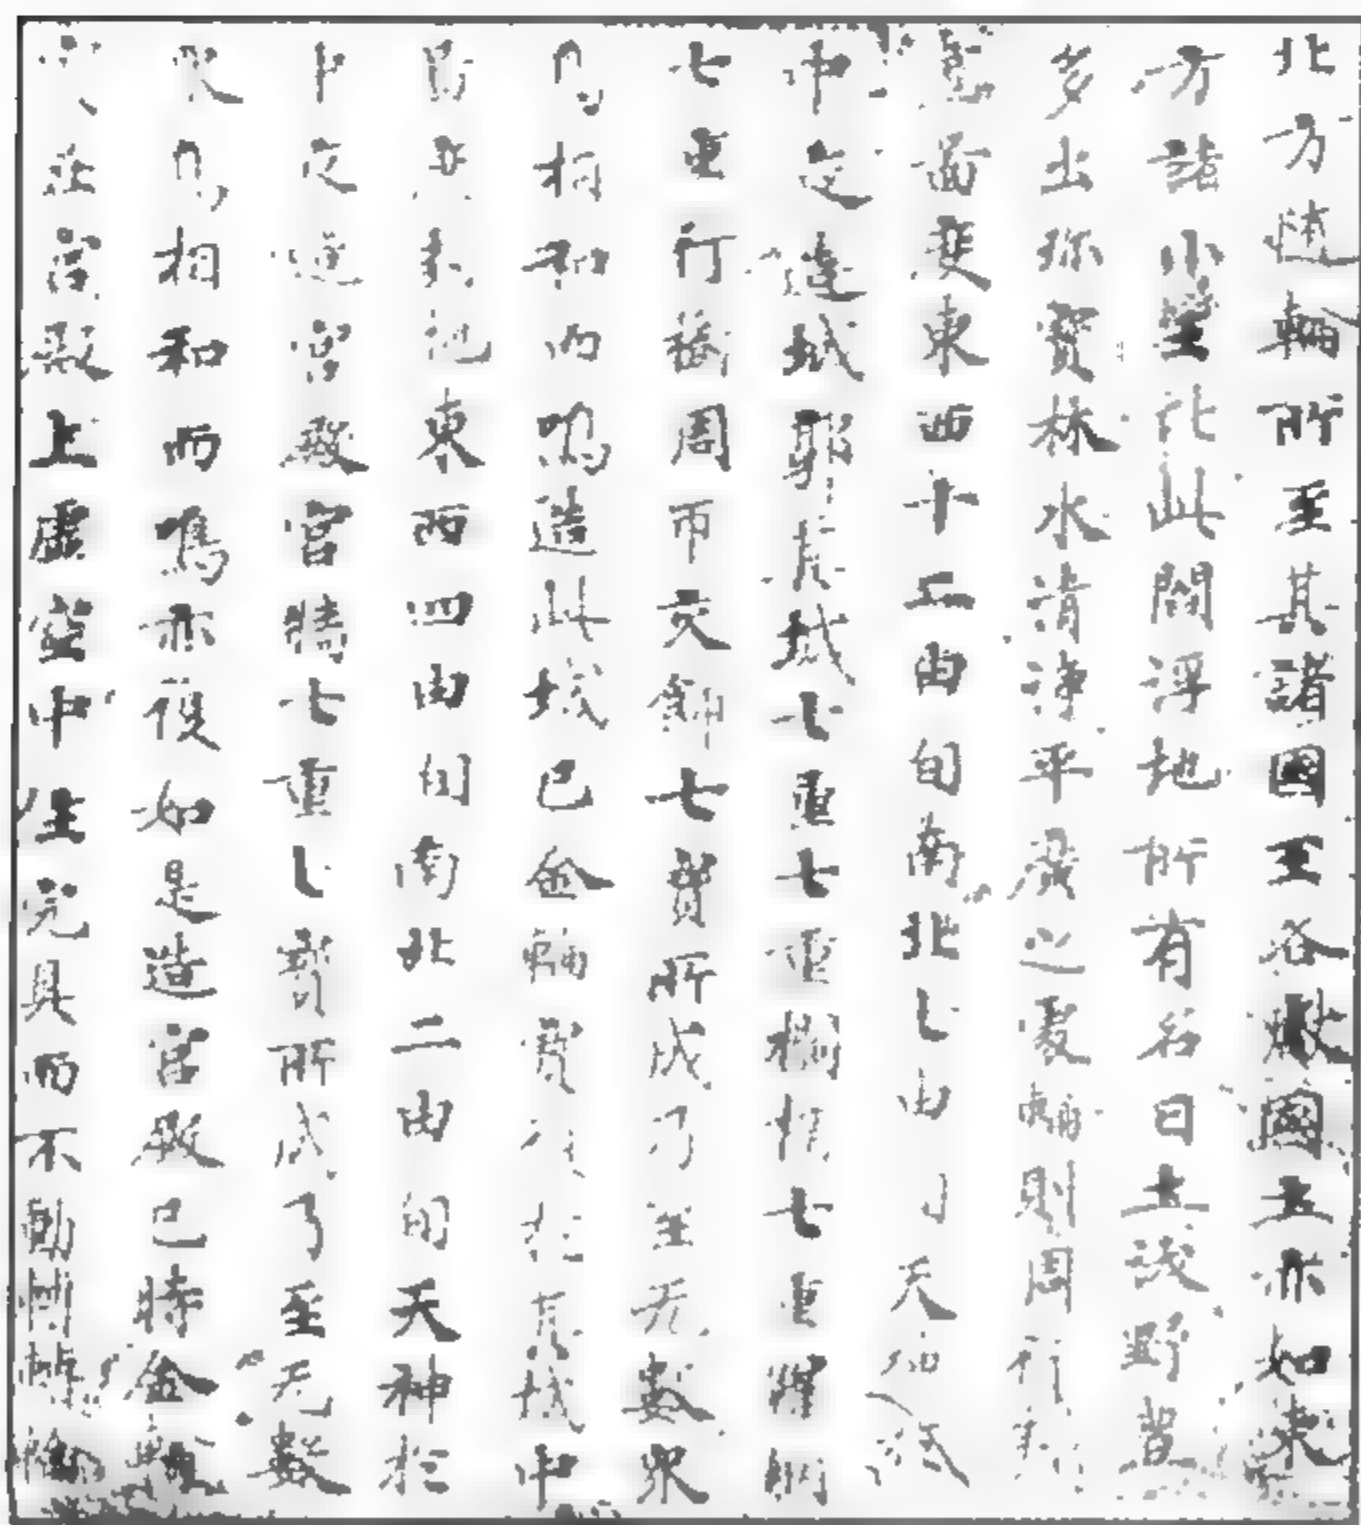 北方隨輪所至其諸國王各獻國土亦如東
方諸小王比此閻浮地所有名曰土沃野豐
多出珍寶林水清淨平廣之處輪則周行封
畫圖度東西十二由旬南北七由旬天神於
中夜造城郭其城七重七重欄楯七重羅網
七重行樹周帀交飾七寶所成乃至无數眾
鳥相和而鳴造此城已金輪寶復於其城中
圖度封地東西四由旬南北二由旬天神於
中夜造宮殿宮牆七重七寶所成乃至无數
眾鳥相和而鳴亦復如是造宮殿已時金輪
在宮殿上虛空中住完具而不動轉轉輪